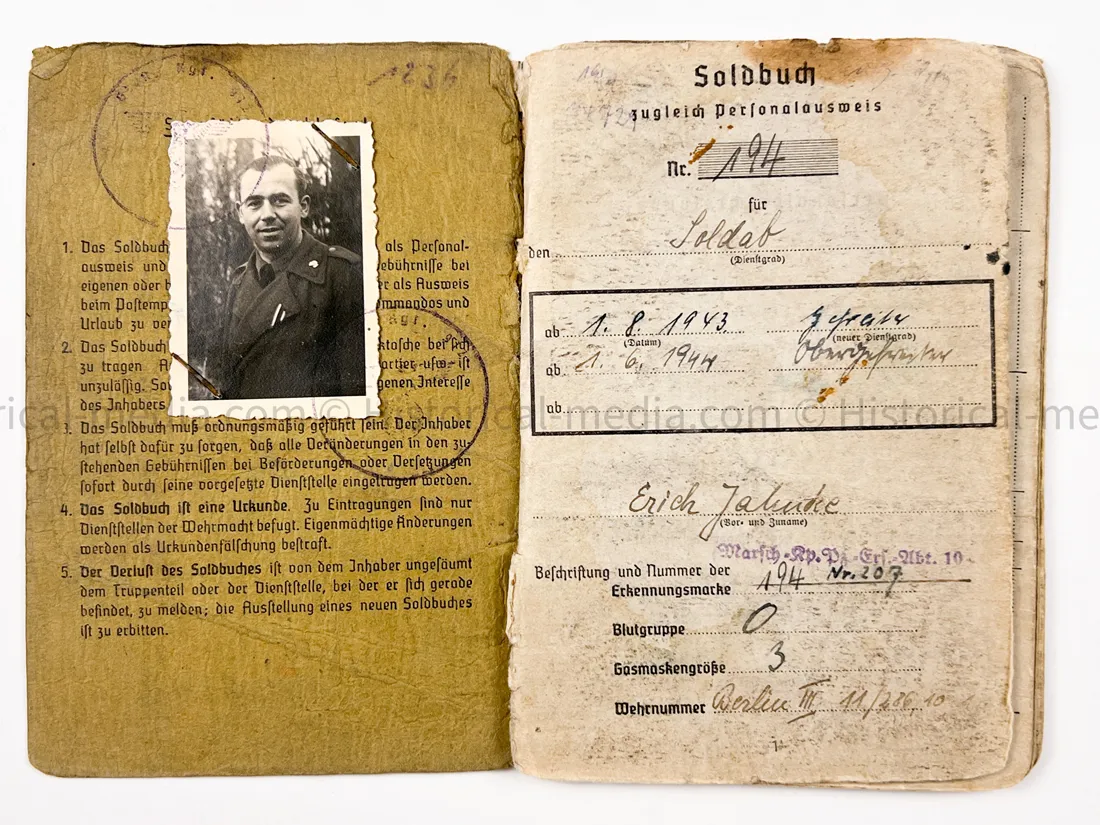 1236
1. Das Soldbuch als Personal-
ausweis und ebührnisse bei
eigenen oder er als Ausweis
beim Postemp mmandos und
Urlaub zu
2. Das Soldbuch ktasche bei sich
zu tragen artier usw. ist
unzulässig. genen Interesse
des Inhabers
3. Das Soldbuch muß ordnungsmäßig geführt sein. Der Inhaber
hat selbst dafür zu sorgen, daß alle Veränderungen in den zu-
stehenden Gebührnissen bei Beförderungen oder Versetzungen
sofort durch seine vorgesetzte Dienststelle eingetragen werden.
4. Das Soldbuch ist eine Urkunde. Zu Eintragungen sind nur
Dienststellen der Wehrmacht befugt. Eigenmächtige Änderungen
werden als Urkundenfälschung bestraft.
5. Der Verlust des Soldbuches ist von dem Inhaber ungesäumt
dem Truppenteil oder der Dienststelle, bei der er sich gerade
befindet, zu melden; die Ausstellung eines neuen Soldbuches
ist zu erbitten.
Soldbuch
zugleich Personalausweis
Nr. 194
für
den Soldat
(Dienstgrad)
ab 1. 8. 1943 Gefreiter
(Datum) (neuer Dienstgrad)
ab 1. 6. 1944 Obergefreiter
ab
Erich Jahncke
(Vor- und Zuname)
Marsch-Kp. Pz.-Ers.-Abt. 10
Beschriftung und Nummer der
Erkennungsmarke 194 Nr. 207
Blutgruppe 0
Gasmaskengröße 3
Wehrnummer Berlin III 11/286/10
© Historical-media.com © Historical-media.com